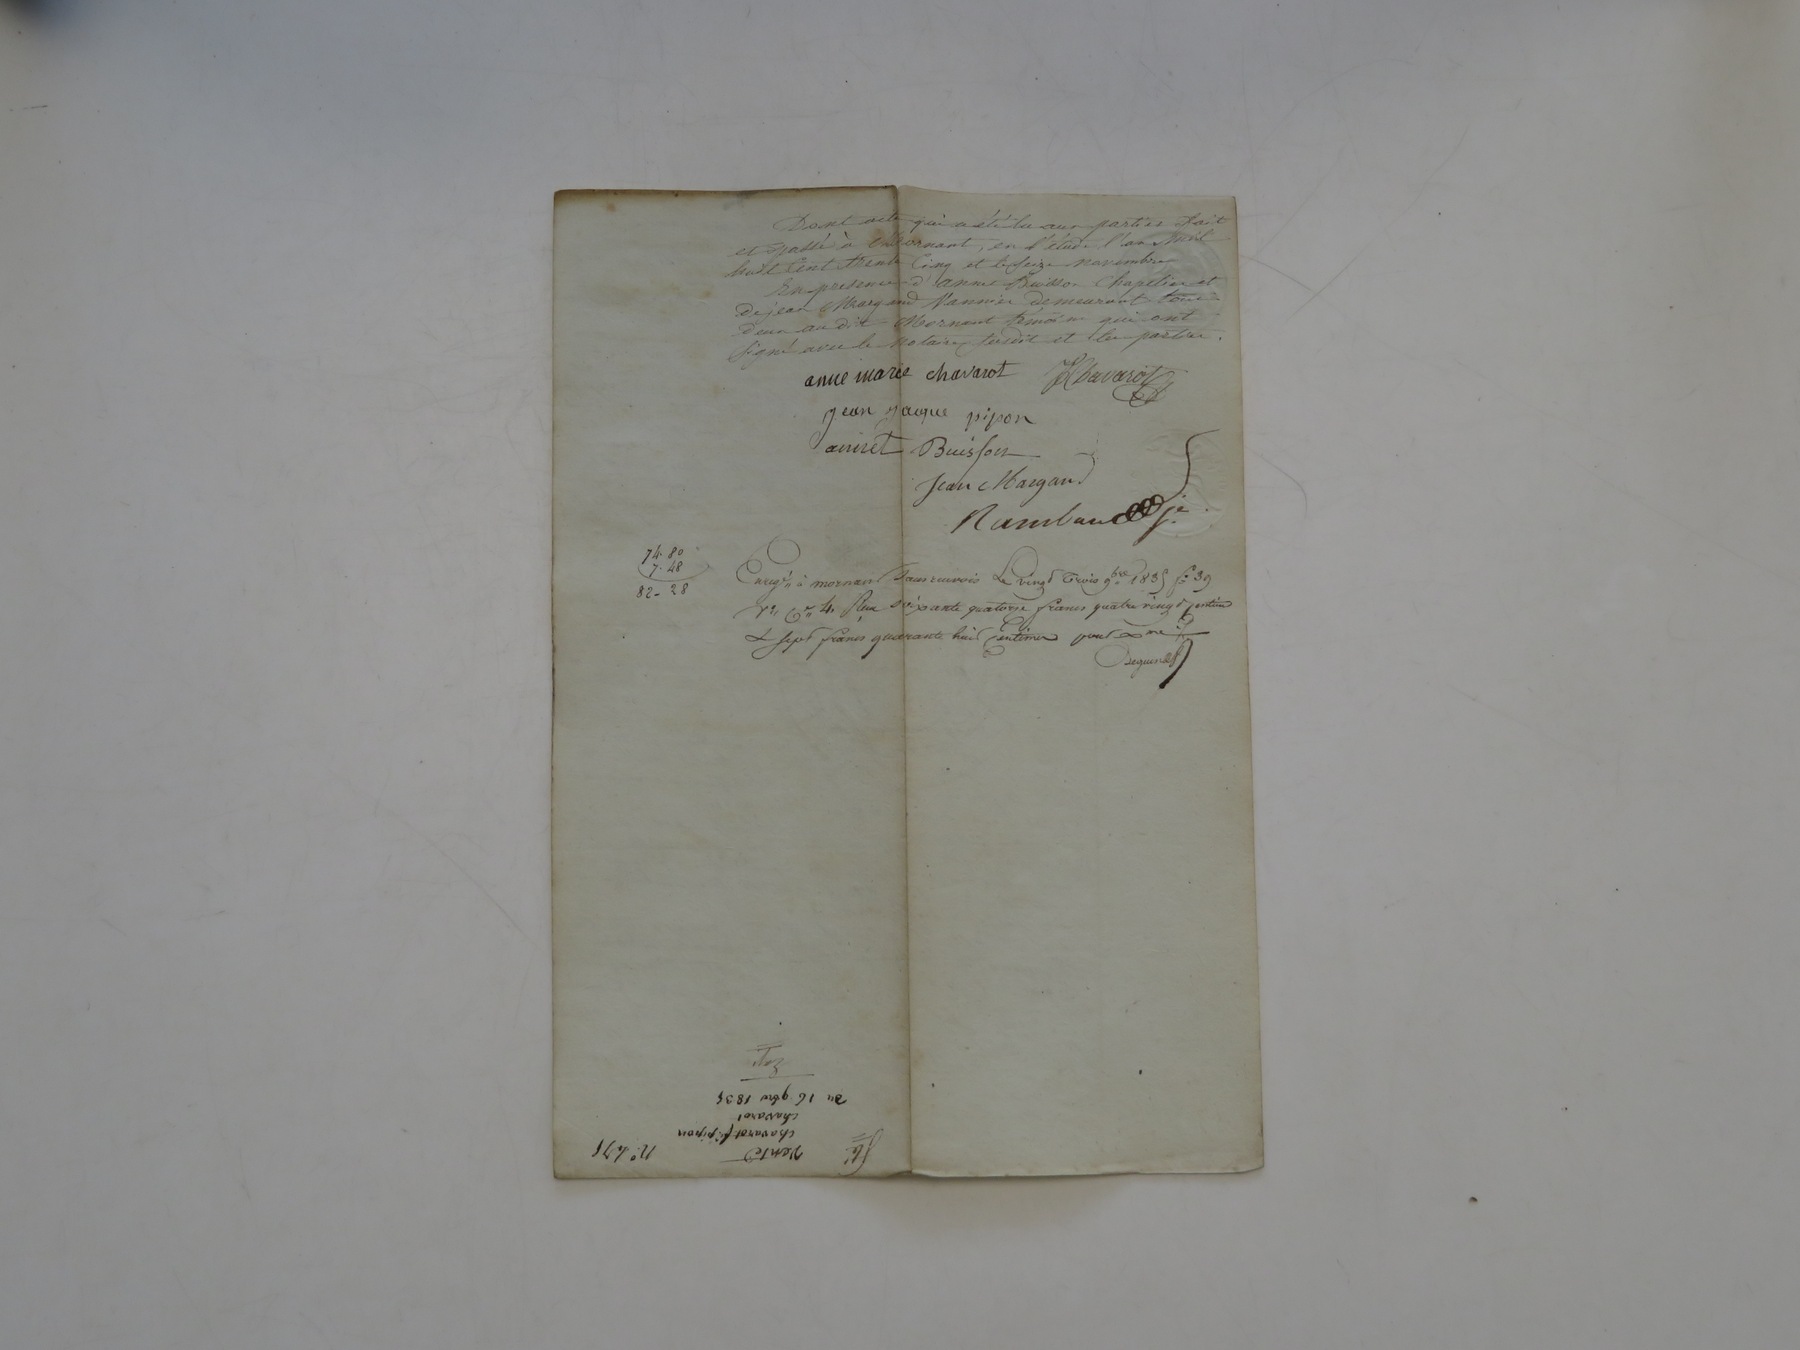 Dont acte qui a été lu aux parties Fait
et passé à Mornant, en l'étude l'an Mil
huit Cent Trente Cinq et le Seize novembre
En presence d' anné Buisson Chapelier et
de jean Margand Vannier demeurant tous
deux au dit Mornant témoins qui ont
signé avec le Notaire susdit et les parties.
anne marie chavarot JChavarot
jean jaque pipon
annet Buisson
Jean Margand
Rambaud je
74-80
7-48
82-28
Enregt. à mornant sans renvois Le vingt Trois 9bre 1835 fo. 39
Vo. Ce. 4. Reçu soixante quatorze francs quatre vingt centimes
& sept francs quarante huit centimes pour
Vente
chavarot f. pipon
chavarot
du 16 9bre 1835
No. 475